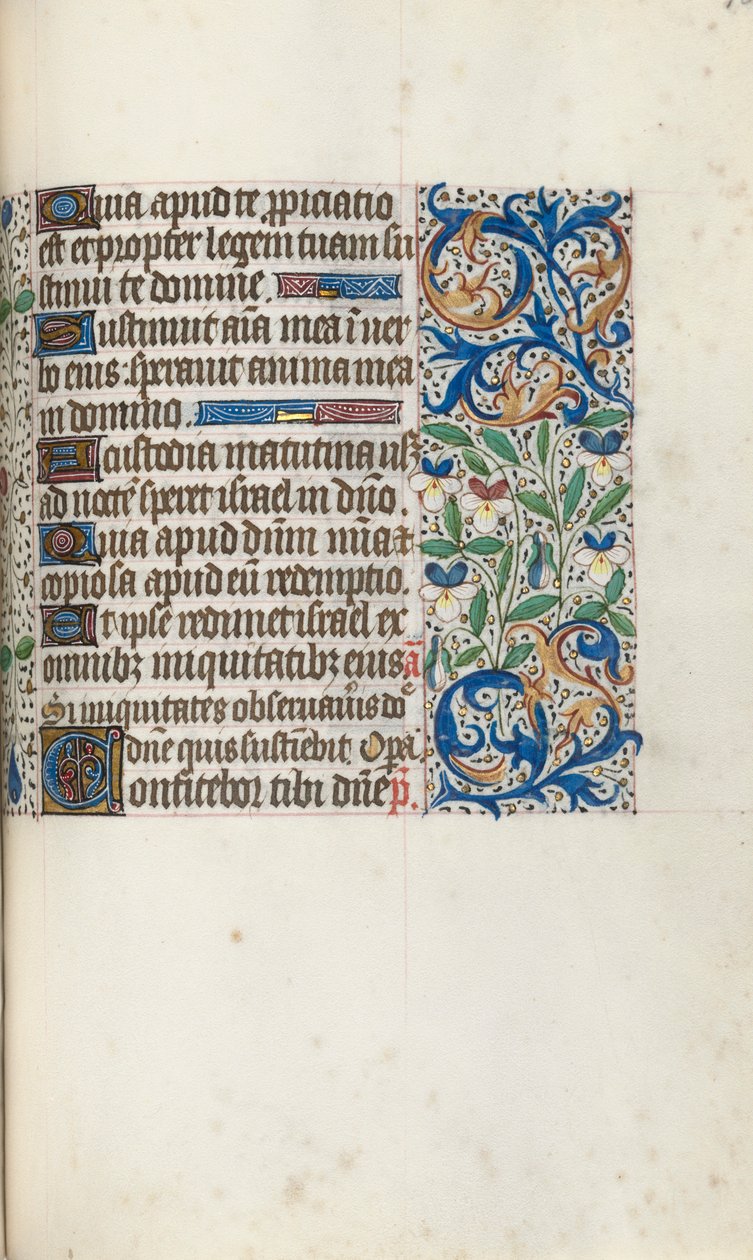 Quia apud te ꝓpiciatio
est et propter legem tuam su
stinui te domine.
Sustinuit aīa mea ī uer
bo eius : sperauit anima mea
in domino.
A custodia matutina usꝫ
ad noctē speret israel in dn̄o.
Quia apud dn̄m mīa et
copiosa apud eū redemptio.
Et ipse redimet israel ex
omnibꝫ iniquitatibꝫ eius ā
Si iniquitates obseruaūis do
dn̄e quis sustīebit. Opa
Confitebor tibi dn̄e p̄.